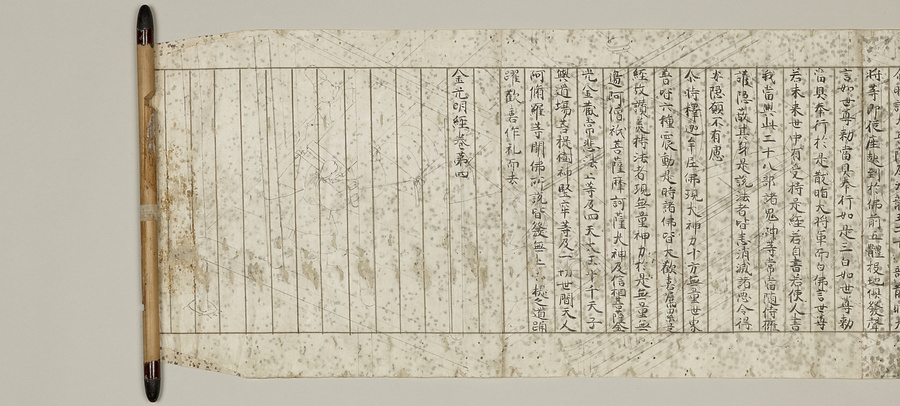 將等即從座起到於佛前五體投地俱發聲
言如世尊勅當具奉行如是三白如世尊勅
當具奉行於是散脂大將軍而白佛言世尊
若未來世中有受持是經若自書若使人書
我當與此二十八部諸鬼神等常當隨侍擁
護隱蔽其身是說法者皆悉消滅諸惡令得
安隱願不有慮
尒時釋迦牟尼佛現大神力十方無量世界
皆六種震動是時諸佛皆大歡喜囑累是
經故讚美持法者現無量神力於是無量無
邊阿僧祇菩薩摩訶薩大神及信相菩薩金
光金藏常悲法上等及四天大王十千天子
與道場菩提樹神堅牢等及一切世間天人
阿脩羅等聞佛所說皆發無上菩提之道踊
躍歡喜作礼而去
金光明經卷第四